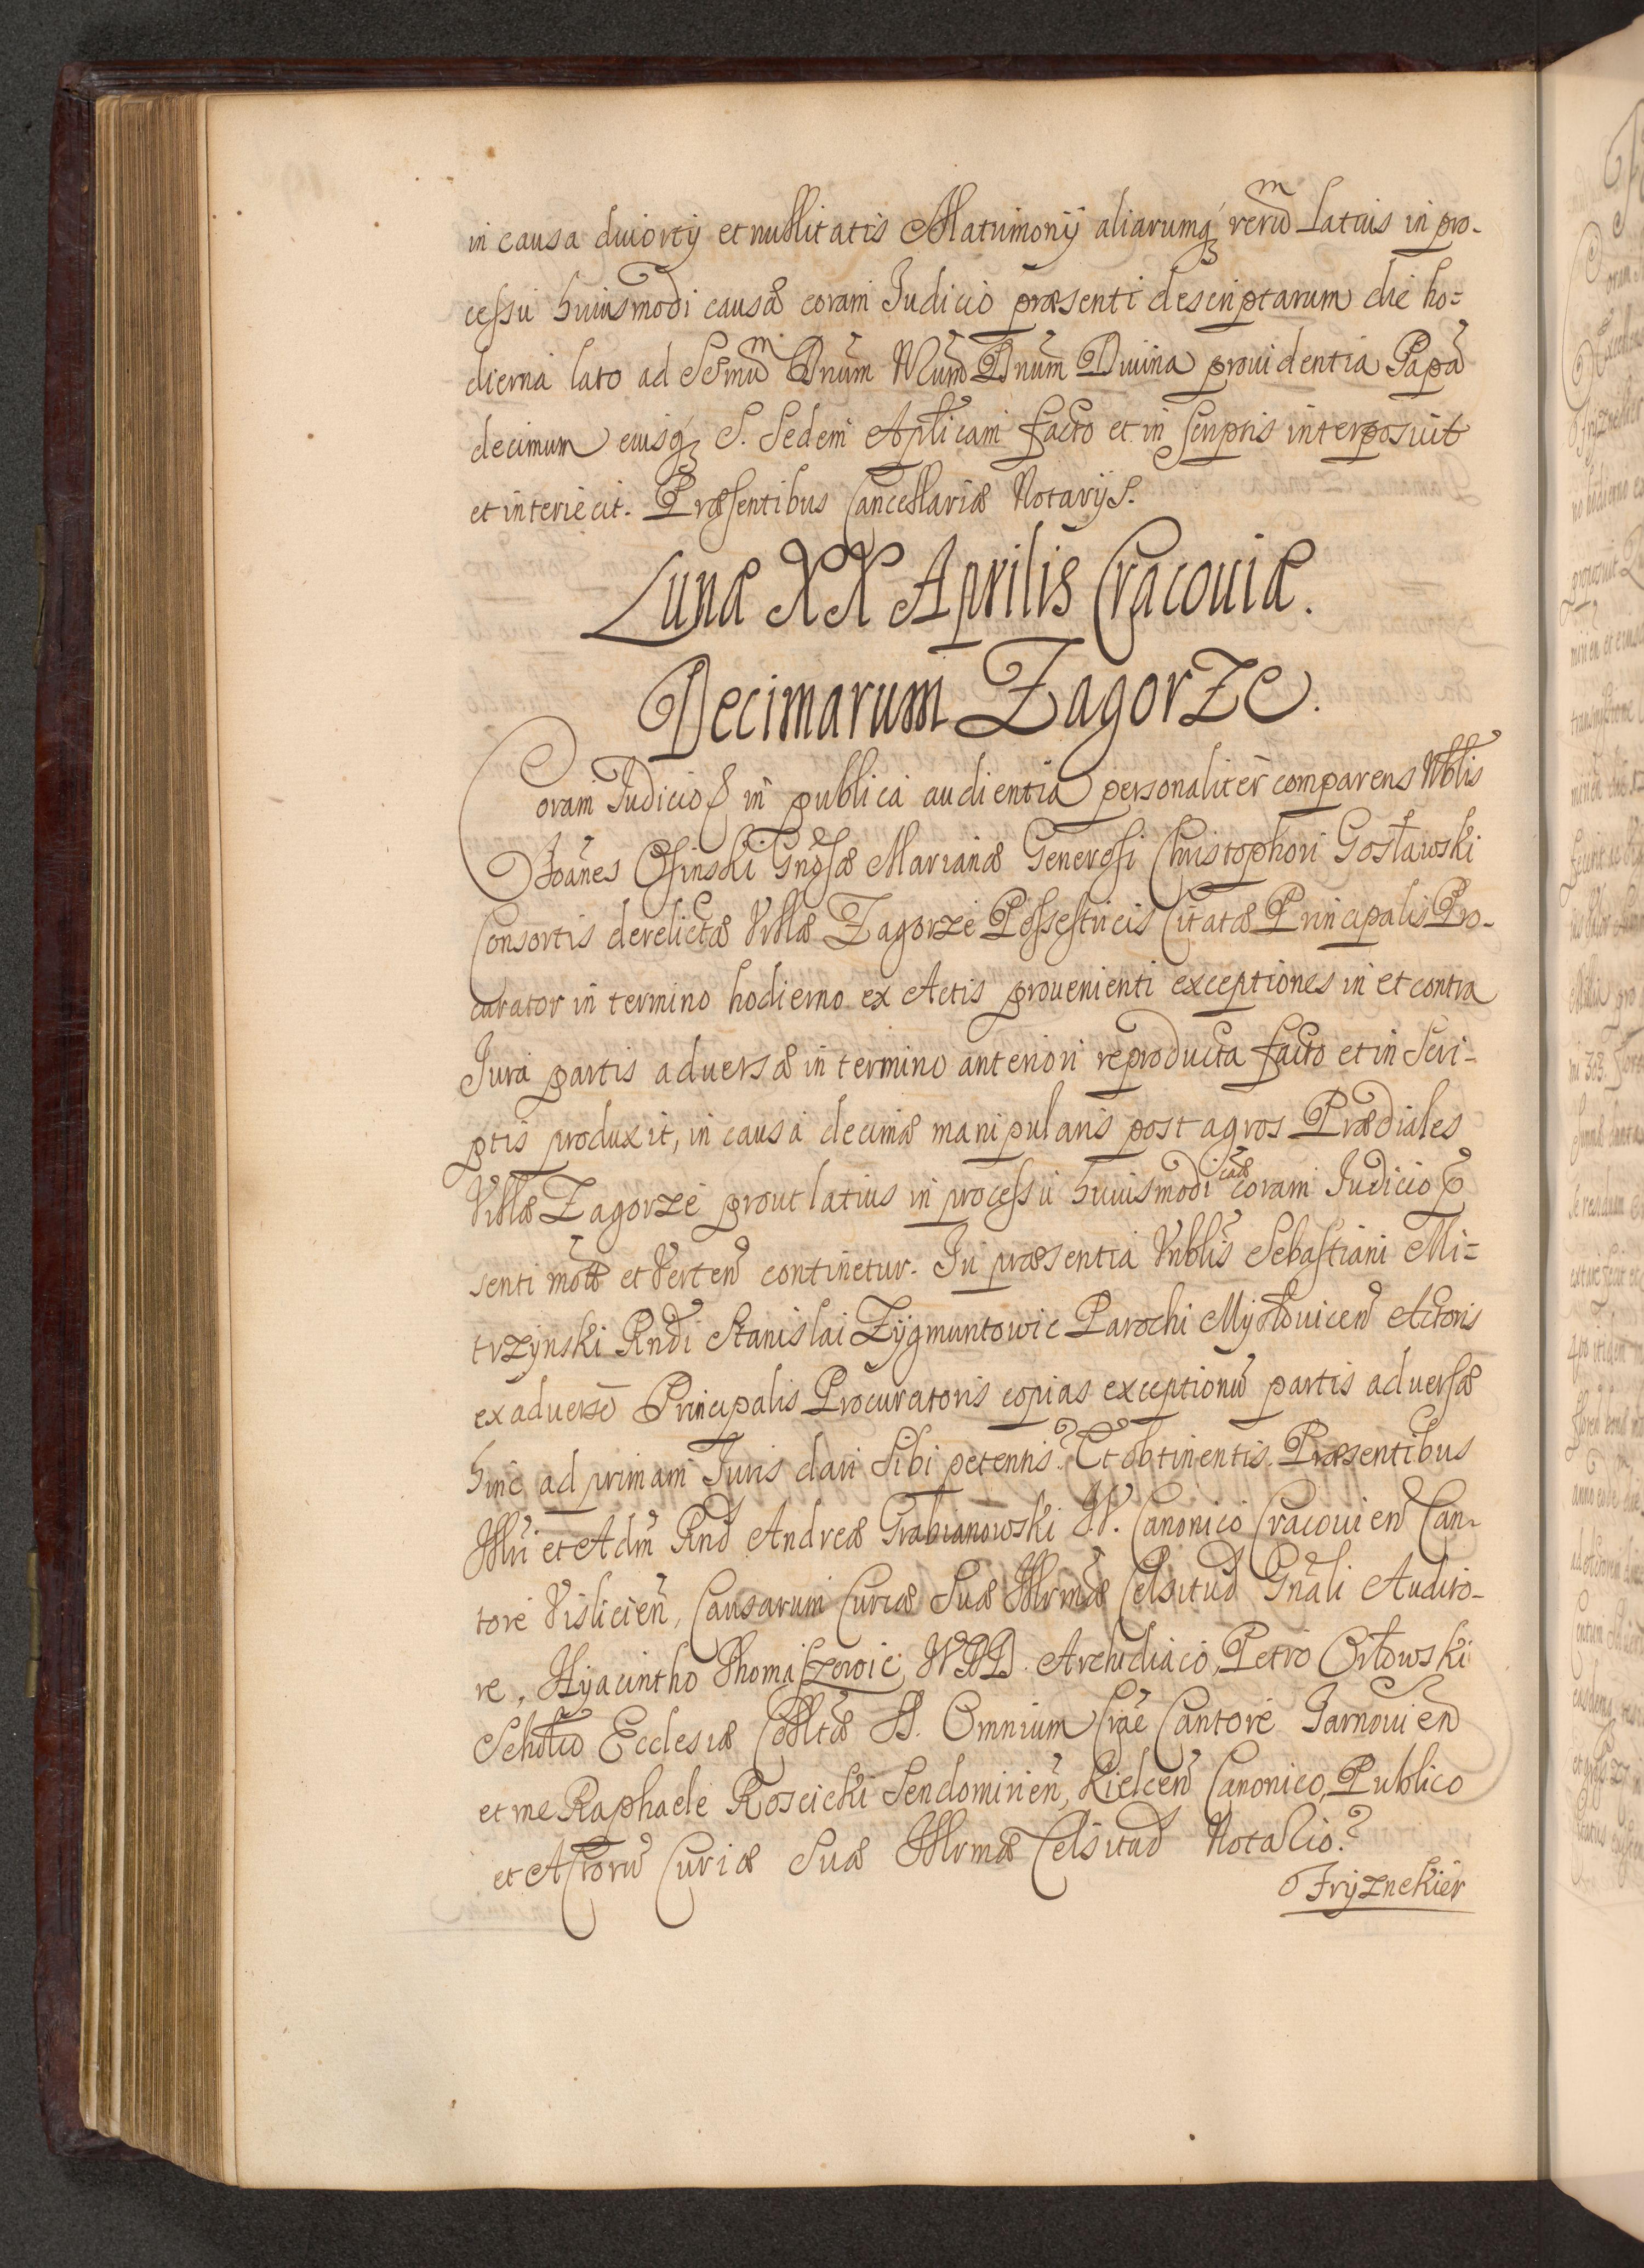 in causa diuortij et nullitatis Matrimonij aliarumq; rerum latius in pro-
cessu huiusmodi causæ coram Iudicio præsenti descriptarum die ho=
dierna lato ad Ssmum Dnum Nrum Dnum Diuina prouidentia Papã
decimum eiusq; S. Sedem Aplicam facto et in scriptis interposuit
et interiecit. Præsentibus Cancellariæ Notarijs.
Lunæ XX Aprilis Cracouiæ.
Decimarum Zagorze.
Coram Iudicio in publica audientia personaliter comparens Nblis
Joãnes Osinski Gnosæ Marianæ Generosi Christophori Gosławski
Consortis derelictæ Villæ Zagorze Possestricis Citatæ Principalis Pro-
curator in termino hodierno ex Actis prouenienti exceptiones in et contra
Iura partis aduersæ in termino anteriori reproducta facto et in Scri-
ptis produxit, in causa decimæ manipularis post agros Prædiales
Villæ Zagorze prout latius in processu huiusmodi cãæ coram Iudicio præ
senti motæ et Verten continetur. In præsentia Nblis Sebastiani Mi=
trzynski Rndi Stanislai Zygmuntowic Parochi Mysłouicen Actoris
ex aduerso Principalis Procuratoris copias exceptionũ partis aduersæ
hinc ad primam Iuris dari Sibi petentis. Et obtinentis. Præsentibus
Illri et Adm Rnd Andrea Grabianowski I.V.D. Canonico Cracouien Can-
tore Vislicien, Causarum Curiæ Suæ Illrmæ Celsitud Gnali Audito-
re, Hyacintho Thomaszewic, Archidiaco, Petro Orłowski
Schol Ecclesiæ Colltæ SS. Omnium Crac Cantore Tarnouien
et me Raphaele Roscicki Sendomirien, Kielcen Canonico, Publico
et Actorũ Curiæ Suæ Illrmæ Celsitud Notario.
Fryznekier